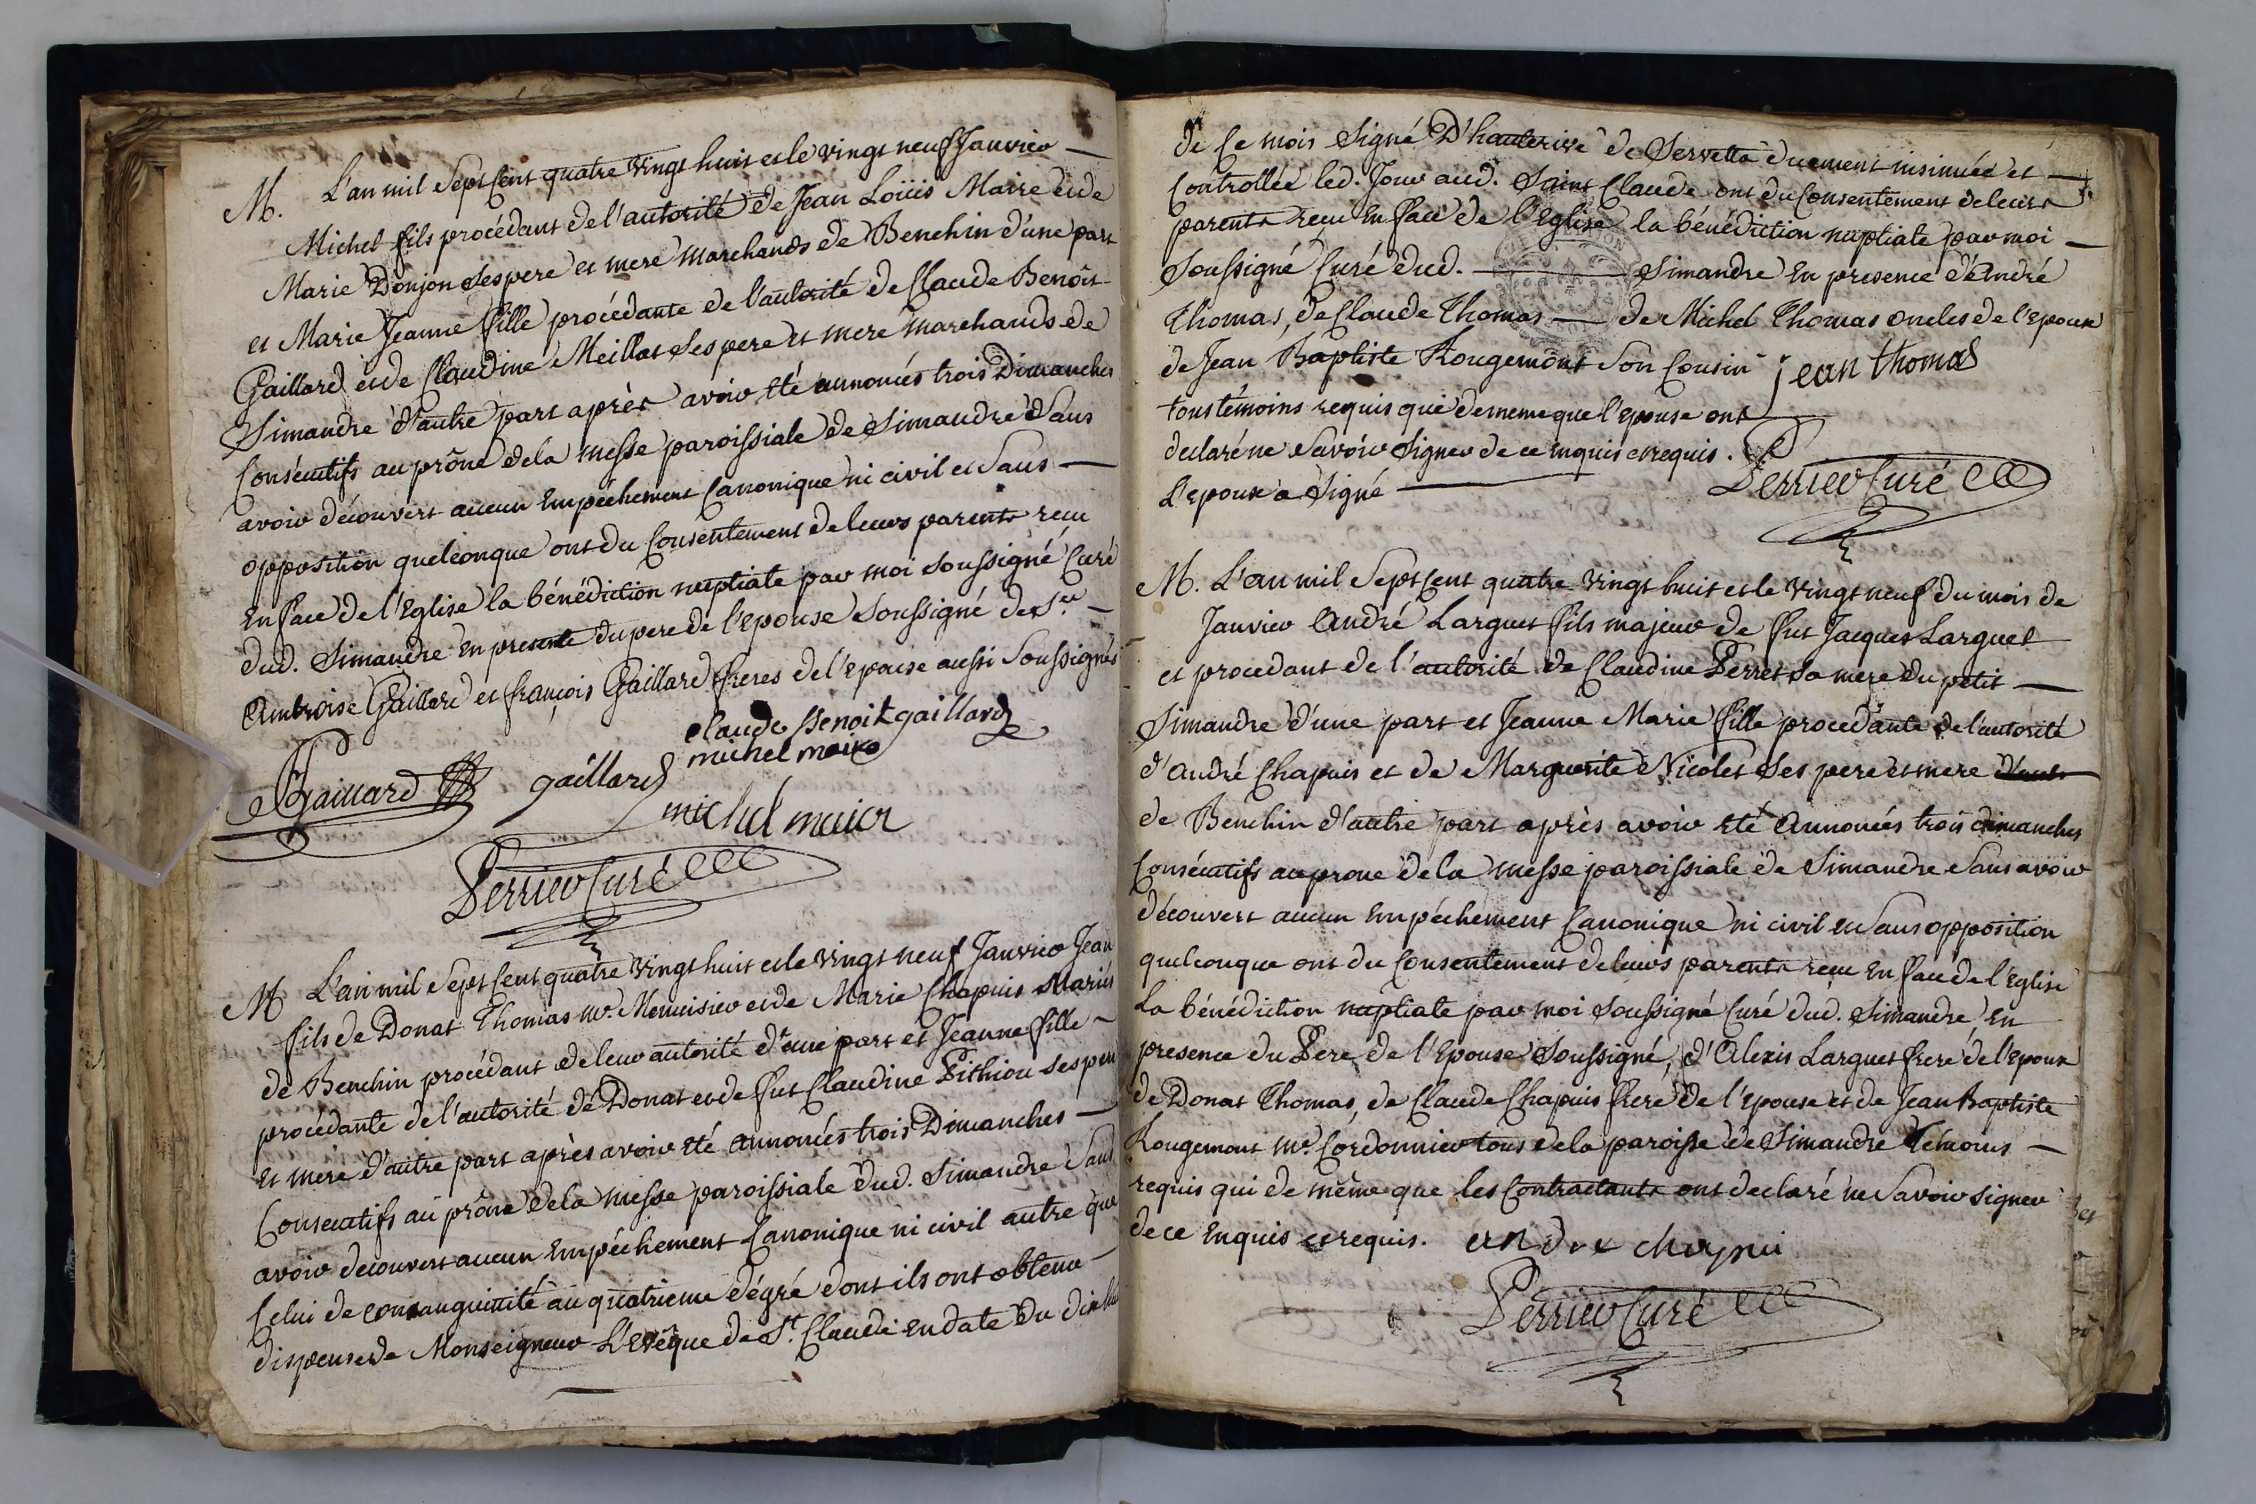 M. L'an mil sept cent quatre vingt huit et le vingt neuf Janvier —
Michel fils procédant de l'autorité de Jean Loüis Maire et de
Marie Donjon ses pere et mere marchands de Benchin d'une part
et Marie Jeanne fille procédante de l'autorité de Claude Benoît
Gaillard et de Claudine Meillat ses pere et mere marchands de
Simandre d'autre part après avoir été annoncés trois Dimanches
Consécutifs au prône de la messe paroissiale de Simandre sans
avoir découvert aucun Empêchement Canonique ni civil et sans —
opposition quelconque ont du Consentement de leurs parents reçu
En face de l'Eglise la bénédiction nuptiale par moi soussigné Curé
dud. Simandre En presence du pere de l'epouse soussigné de Sr. —
Ambroise Gaillard et françois Gaillard freres de l'epouse aussi soussignés
claude Benoit gaillard
michel maire
Gaillard gaillard
michel maire
Perrier Curé
M L'an mil sept cent quatre vingt huit et le vingt neuf Janvier Jean
fils de Donat Thomas me. Menuisier et de Marie Chapuis Mariés
de Benchin procédant de leur autorité d'une part et Jeanne fille —
procédante de l'autorité de Donat et de fut Claudine Pithiou ses pere
et mere d'autre part après avoir été annoncés trois Dimanches —
Consecutifs au prône de la messe paroissiale dud. Simandre sans
avoir decouvert aucun Empêchement Canonique ni civil autre que
Celui de consanguinité au quatrieme dégré dont ils ont obtenu —
dispense de Monseigneur L'Evêque de St. Claude en date du
de ce mois signé D'hauterive de Servette duement insinuée et —
Controllée led. Jour aud. Saint Claude ont du Consentement de leurs
parents reçu En face de l'Eglise la bénédiction nuptiale par moi —
soussigné Curé dud. — Simandre En presence d'André
Thomas, de Claude Thomas — de Michel Thomas oncles de l'epoux
de Jean Baptiste Rougemont son Cousin jean thomas
tous témoins requis qui de meme que l'epouse ont
declaré ne savoir signer de ce inquis et requis.
L'epoux a signé — Perrier Curé
M. L'an mil sept cent quatre vingt huit et le vingt neuf du mois de
Janvier André Larguet fils majeur de fut Jacques Larguet
et procedant de l'autorité de Claudine Perret sa mere du petit —
Simandre d'une part et Jeanne Marie fille procédante de l'autorité
d'André Chapuis et de Marguerite Nicolet ses pere et mere
de Benchin d'autre part après avoir été Annoncés trois dimanches
Consécutifs au prone de la messe paroissiale de Simandre sans avoir
découvert aucun Empêchement Canonique ni civil et sans opposition
quelconque ont du Consentement de leurs parents reçu En face de l'Eglise
La bénédiction nuptiale par moi soussigné Curé dud. Simandre, En
presence du Pere de l'Epouse soussigné, d'Alexis Larguet frere de l'epoux
de Donat Thomas, de Claude Chapuis frere de l'epouse et de Jean Baptiste
Rougemont me. Cordonnier tous de la paroisse de Simandre témoins —
requis qui de même que les Contractants ont declaré ne savoir signer
de ce Enquis et requis. andre chapui
Perrier Curé